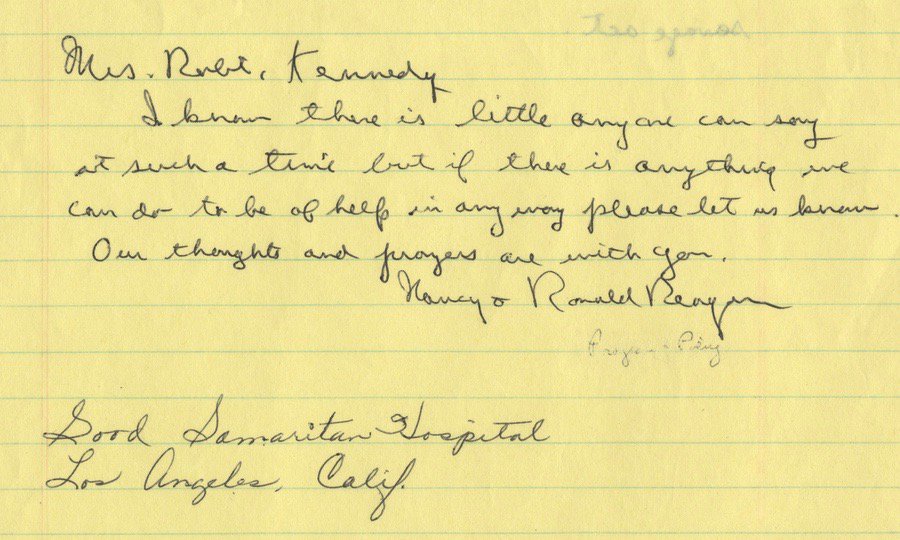 Mrs. Robt. Kennedy
I know there is little anyone can say
at such a time but if there is anything we
can do to be of help in any way please let us know.
Our thoughts and prayers are with you.
Nancy & Ronald Reagan
Good Samaritan Hospital
Los Angeles, Calif.